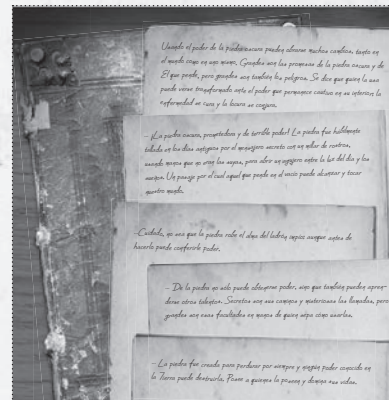 Usando el poder de la piedra oscura pueden obrarse muchos cambios, tanto en
el mundo como en uno mismo. Grandes son las promesas de la piedra oscura y de
Él que pende, pero grandes son también los peligros. Se dice que quien la usa
puede verse transformado ante el poder que permanece cautivo en su interior: la
enfermedad se cura y la locura se conjura.
– ¡La piedra oscura, prometedora y de terrible poder! La piedra fue hábilmente
tallada en los días antiguos por el mensajero secreto con un millar de rostros,
usando manos que no eran las suyas, para abrir un agujero entre la luz del día y los
sueños. Un pasaje por el cual aquel que pende en el vacío puede alcanzar y tocar
nuestro mundo.
– Cuidado, no sea que la piedra robe el alma del ladrón impío aunque antes de
hacerlo puede conferirle poder.
– De la piedra no sólo puede obtenerse poder, sino que también pueden apren-
derse otros talentos. Secretos son sus caminos y misteriosas las llamadas, pero
grandes son esas facultades en manos de quien sepa cómo usarlas.
– La piedra fue creada para perdurar por siempre y ningún poder conocido en
la Tierra puede destruirla. Posee a quienes la poseen y domina sus vidas.